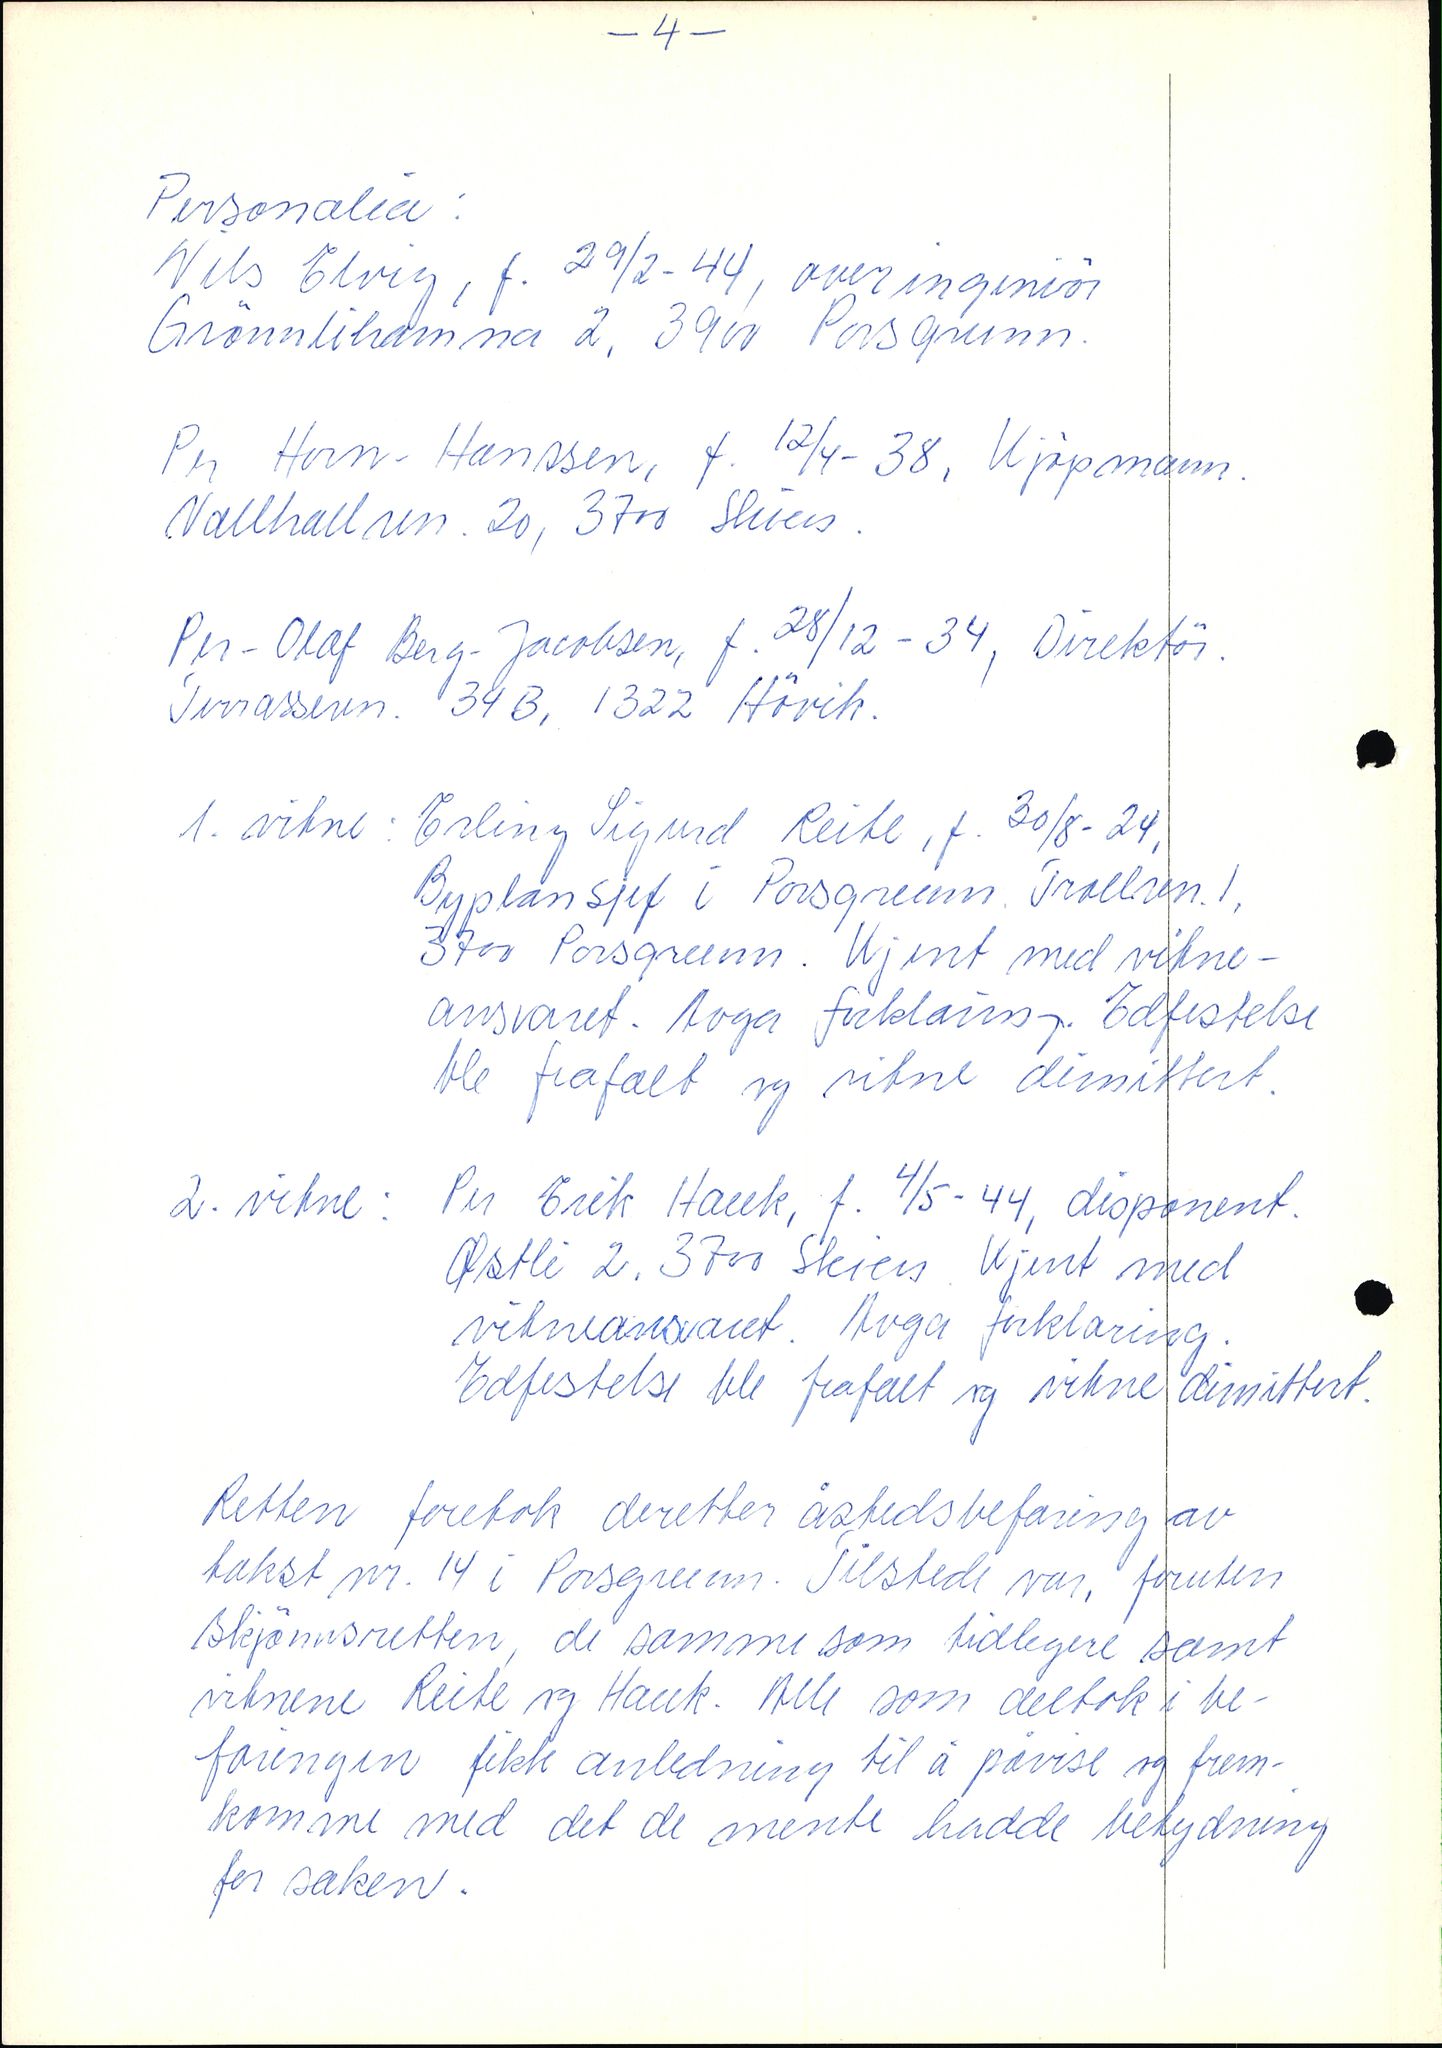 – 4 –
Personalia:
Nils Elvig, f. 29/2-44, overingeniör
Grönnlihamna 2, 3900 Porsgrunn.
Per Horn-Hanssen, f. 12/4-38, Kjöpmann.
Vallhallvn. 20, 3700 Skien.
Per-Olaf Berg-Jacobsen, f. 28/12-34, Direktör.
Terrassevn. 34B, 1322 Hövik.
1. vitne: Erling Sigurd Reite, f. 30/8-24,
Byplansjef i Porsgrunn. Trollvn. 1,
3700 Porsgrunn. Kjent med vitne-
ansvaret. Avga forklaring. Edfestelse
ble frafalt og vitne dimittert.
2. vitne: Per Erik Hauk, f. 4/5-44, disponent.
Østli 2, 3700 Skien. Kjent med
vitneansvaret. Avga forklaring.
Edfestelse ble frafalt og vitne dimittert.
Retten foretok deretter åstedsbefaring av
takst nr. 14 i Porsgrunn. Tilstede var, foruten
skjönnsretten, de samme som tidligere samt
vitnene Reite og Hauk. Alle som deltok i be-
faringen fikk anledning til å påvise og frem-
komme med det de mente hadde betydning
for saken.